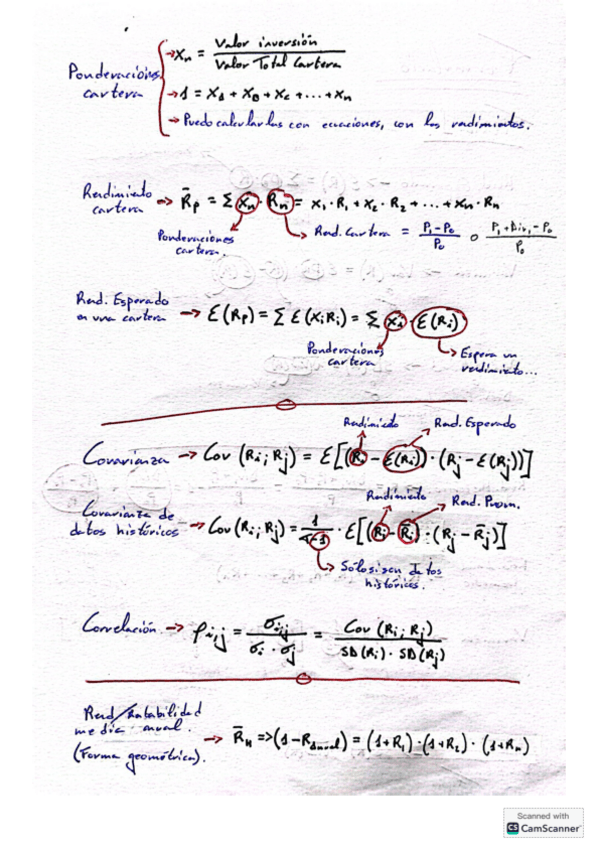 Ponderaciones cartera
→ Xn = Valor inversión / Valor Total Cartera
→ 1 = XA + XB + XC + ... + Xn
→ Puedo calcularlas con ecuaciones, con los rendimientos.
Rendimiento cartera → R̄p = Σ Xn · Rn = X1 · R1 + X2 · R2 + ... + Xn · Rn
Ponderaciones cartera.
→ Rend. Cartera = P1 - P0 / P0 o P1 + Div1 - P0 / P0
Rend. Esperado en una cartera → E(Rp) = Σ E(XiRi) = Σ Xi · E(Ri)
Ponderaciones cartera
→ Espera un rendimiento...
Rendimiento Rend. Esperado
Covarianza → Cov (Ri; Rj) = E[(Ri - E(Ri)) · (Rj - E(Rj))]
Rendimiento Rend. Prom.
Covarianza de datos históricos → Cov (Ri; Rj) = 1/T-1 · E[(Ri - R̄i) · (Rj - R̄j)]
→ Sólo si son datos históricos.
Correlación → ρi,j = σij / σi · σj = Cov (Ri; Rj) / SD(Ri) · SD(Rj)
Rend/Rentabilidad media anual. (Forma geométrica). → R̄H => (1 - RAnual) = (1+R1) · (1+R2) · (1+Rn)
Scanned with
CS CamScanner